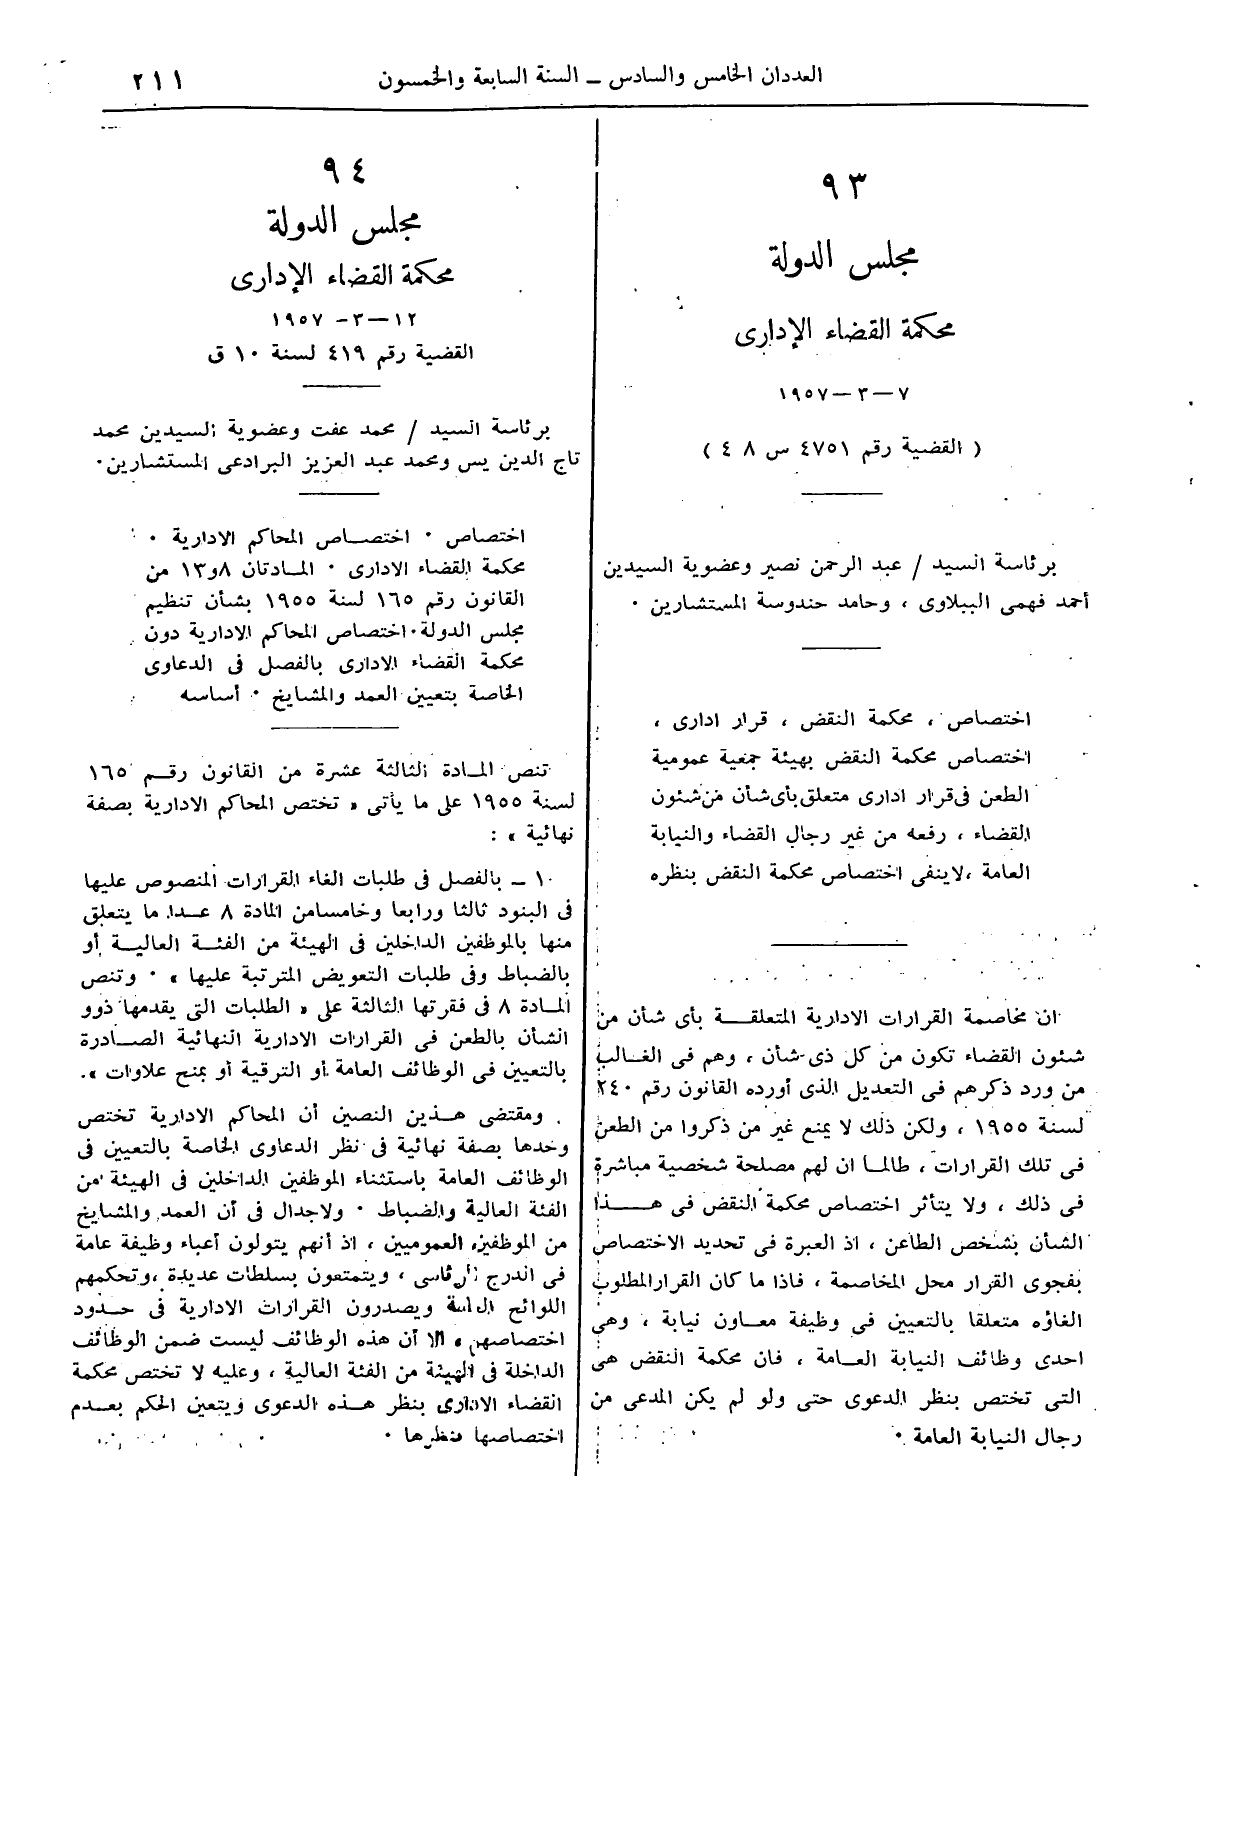 العددان الخامس والسادس ــ السنة السابعة والخمسون
٢١١
٩٣
مجلس الدولة
محكمة القضاء الإدارى
٧ — ٣ — ١٩٥٧
( القضية رقم ٤٧٥١ س ٨ ٤ )
برئاسة السيد / عبد الرحمن نصير وعضوية السيدين
أحمد فهمى الببلاوى ، وحامد حندوسة المستشارين ٠
اختصاص ، محكمة النقض ، قرار ادارى ،
اختصاص محكمة النقض بهيئة جمعية عمومية
الطعن فى قرار ادارى متعلق بأى شأن من شئون
القضاء ، رفعه من غير رجال القضاء والنيابة
العامة ، لاينفى اختصاص محكمة النقض بنظره
ان مخاصمة القرارات الادارية المتعلقة بأى شأن من
شئون القضاء تكون من كل ذى شأن ، وهم فى الغالب
من ورد ذكرهم فى التعديل الذى أورده القانون رقم ٢٤٠
لسنة ١٩٥٥ ، ولكن ذلك لا يمنع غير من ذكروا من الطعن
فى تلك القرارات ، طالما ان لهم مصلحة شخصية مباشرة
فى ذلك ، ولا يتأثر اختصاص محكمة النقض فى هذا
الشأن بشخص الطاعن ، اذ العبرة فى تحديد الاختصاص
بفحوى القرار محل المخاصمة ، فاذا ما كان القرار المطلوب
الغاؤه متعلقا بالتعيين فى وظيفة معاون نيابة ، وهى
احدى وظائف النيابة العامة ، فان محكمة النقض هى
التى تختص بنظر الدعوى حتى ولو لم يكن المدعى من
رجال النيابة العامة ٠
٩٤
مجلس الدولة
محكمة القضاء الإدارى
١٢ — ٣ – ١٩٥٧
القضية رقم ٤١٩ لسنة ١٠ ق
برئاسة السيد / محمد عفت وعضوية السيدين محمد
تاج الدين يس ومحمد عبد العزيز البرادعى المستشارين ٠
اختصاص ٠ اختصاص المحاكم الادارية ٠
محكمة القضاء الادارى ٠ المادتان ٨و١٣ من
القانون رقم ١٦٥ لسنة ١٩٥٥ بشأن تنظيم
مجلس الدولة٠ اختصاص المحاكم الادارية دون
محكمة القضاء الادارى بالفصل فى الدعاوى
الخاصة بتعيين العمد والمشايخ ٠ أساسه
تنص المادة الثالثة عشرة من القانون رقم ١٦٥
لسنة ١٩٥٥ على ما يأتى « تختص المحاكم الادارية بصفة
نهائية » :
١٠ ــ بالفصل فى طلبات الغاء القرارات المنصوص عليها
فى البنود ثالثا ورابعا وخامسا من المادة ٨ عدا ما يتعلق
منها بالموظفين الداخلين فى الهيئة من الفئة العالية أو
بالضباط وفى طلبات التعويض المترتبة عليها » ٠ وتنص
المادة ٨ فى فقرتها الثالثة على « الطلبات التى يقدمها ذوو
الشأن بالطعن فى القرارات الادارية النهائية الصادرة
بالتعيين فى الوظائف العامة أو الترقية أو بمنح علاوات ».
ومقتضى هذين النصين أن المحاكم الادارية تختص
وحدها بصفة نهائية فى نظر الدعاوى الخاصة بالتعيين فى
الوظائف العامة باستثناء الموظفين الداخلين فى الهيئة من
الفئة العالية والضباط ٠ ولاجدال فى أن العمد والمشايخ
من الموظفين العموميين ، اذ أنهم يتولون أعباء وظيفة عامة
فى اندرج الرئاسى ، ويتمتعون بسلطات عديدة ، وتحكمهم
اللوائح العامة ويصدرون القرارات الادارية فى حدود
اختصاصهم ، الا أن هذه الوظائف ليست ضمن الوظائف
الداخلة فى الهيئة من الفئة العالية ، وعليه لا تختص محكمة
القضاء الادارى بنظر هذه الدعوى ويتعين الحكم بعدم
اختصاصها بنظرها ٠